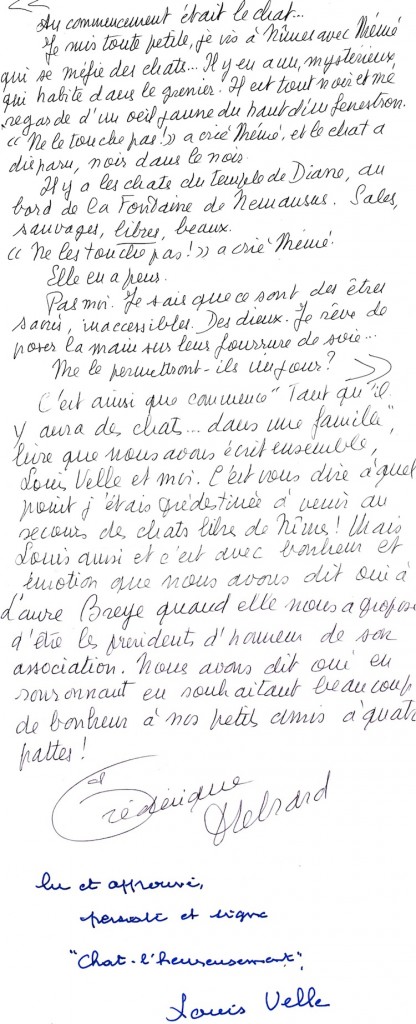 «
Au commencement était le chat...
Je suis toute petite, je vis à Nîmes avec Mémé
qui se méfie des chats... Il y en a un, mystérieux,
qui habite dans le grenier. Il est tout noir et me
regarde d'un oeil jaune du haut d'un fenestron.
« Ne le touche pas! » a crié Mémé, et le chat a
disparu, noir dans le noir.
Il y a les chats du temple de Diane, au
bord de la Fontaine de Nemausus. Sales,
sauvages, libres, beaux.
« Ne les touche pas! » a crié Mémé.
Elle en a peur.
Pas moi. Je sais que ce sont des êtres
sacrés, inaccessibles. Des dieux. Je rêve de
poser la main sur leur fourrure de soie...
Me le permettront-ils un jour? »
C'est ainsi que commence "Tant qu'il
y aura des chats... dans une famille",
livre que nous avons écrit ensemble,
Louis Velle et moi. C'est vous dire à quel
point j'étais prédestinée à venir au
secours des chats libres de Nîmes! Mais
Louis aussi et c'est avec bonheur et
émotion que nous avons dit oui à
Laure Breye quand elle nous a proposé
d'être les présidents d'honneur de son
association. Nous avons dit oui en
ronronnant en souhaitant beaucoup
de bonheur à nos petits amis à quatre
pattes!
Frédérique
Hebrard
lu et approuvé,
persiste et signe
"Chat-l'heureusement",
Louis Velle